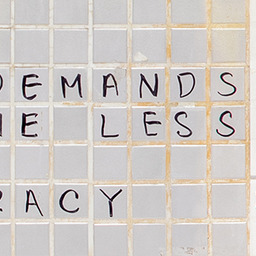 DEMANDS
E LESS
RACY